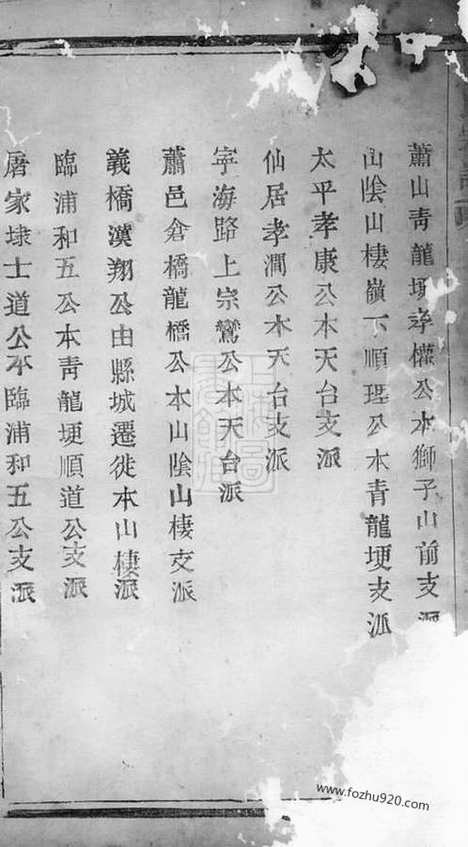 蕭山青龍埂孝權公本獅子山前支派
山陰山棲嶺下順理公本青龍埂支派
太平孝康公本天台支派
仙居孝澗公本天台支派
寧海路上宗鸞公本天台派
蕭邑倉橋龍橋公本山陰山棲支派
義橋漢翔公由縣城遷徙本山棲派
臨浦和五公本青龍埂順道公支派
屠家埭士道公本臨浦和五公支派
www.fozhu920.com